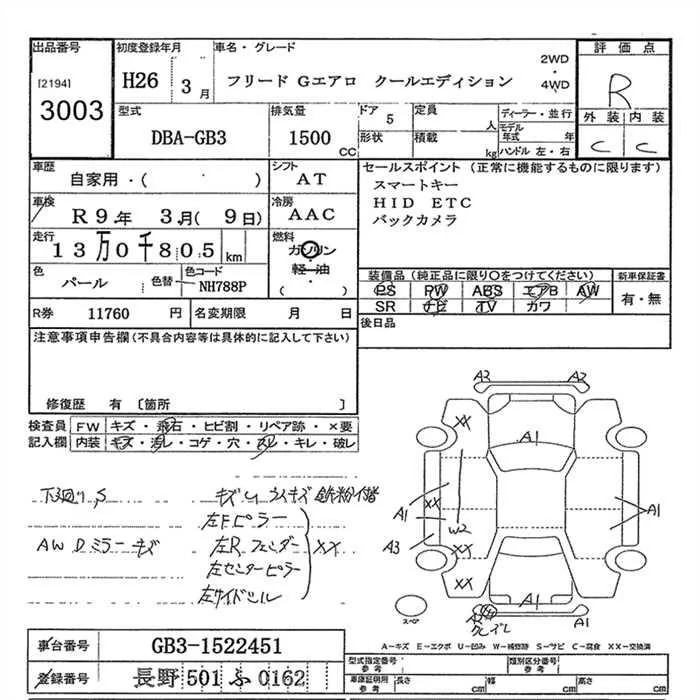 出品番号
初度登録年月
車名・グレード
評価点
[2194]
3003
H26
3月
フリード Gエアロ クールエディション
2WD
・
4WD
R
外装
内装
C
C
型式
DBA-GB3
排気量
1500
CC
ドア
5
形状
定員
人
積載
kg
ディーラー・並行
モデル年式
年
ハンドル 左・右
車歴
自家用・(
)
シフト
AT
セールスポイント (正常に機能するものに限ります)
スマートキー
HID ETC
バックカメラ
車検
R 9年 3月( 9日)
冷房
AAC
走行
13万0千805
km
燃料
ガソリン
軽・油
(・)
色
パール
色替
色コード
NH788P
装備品 (純正品に限り〇をつけてください)
PS PW ABS エアB AW
SR ナビ TV カワ
新車保証書
有・無
R券
11760
円
名変期限
月
日
後日品
注意事項申告欄(不具合内容等は具体的に記入して下さい)
修復歴 有 〔箇所
〕
検査員記入欄
FW
キズ・飛石・ヒビ割・リペア跡・×要
内装
キズ・汚レ・コゲ・穴・スレ・キレ・破レ
下廻りS
キズ
左Fピラー
AW Dミラーキズ
左Rフェンダー
XX
左センターピラー
左サイドシル
A2
A2
XX
A1
A1
XX
W2
A1
A3
XX
XX
A1
A1
スペア
A-キズ E-エクボ U-凹み W-補修跡 S-サビ C-腐食 XX-交換済
車台番号
GB3-1522451
登録番号
長野 501 ふ 0162
型式指定番号
参考
類別区分番号
参考
車庫証明用
参考
長さ
cm
幅
cm
高さ
cm